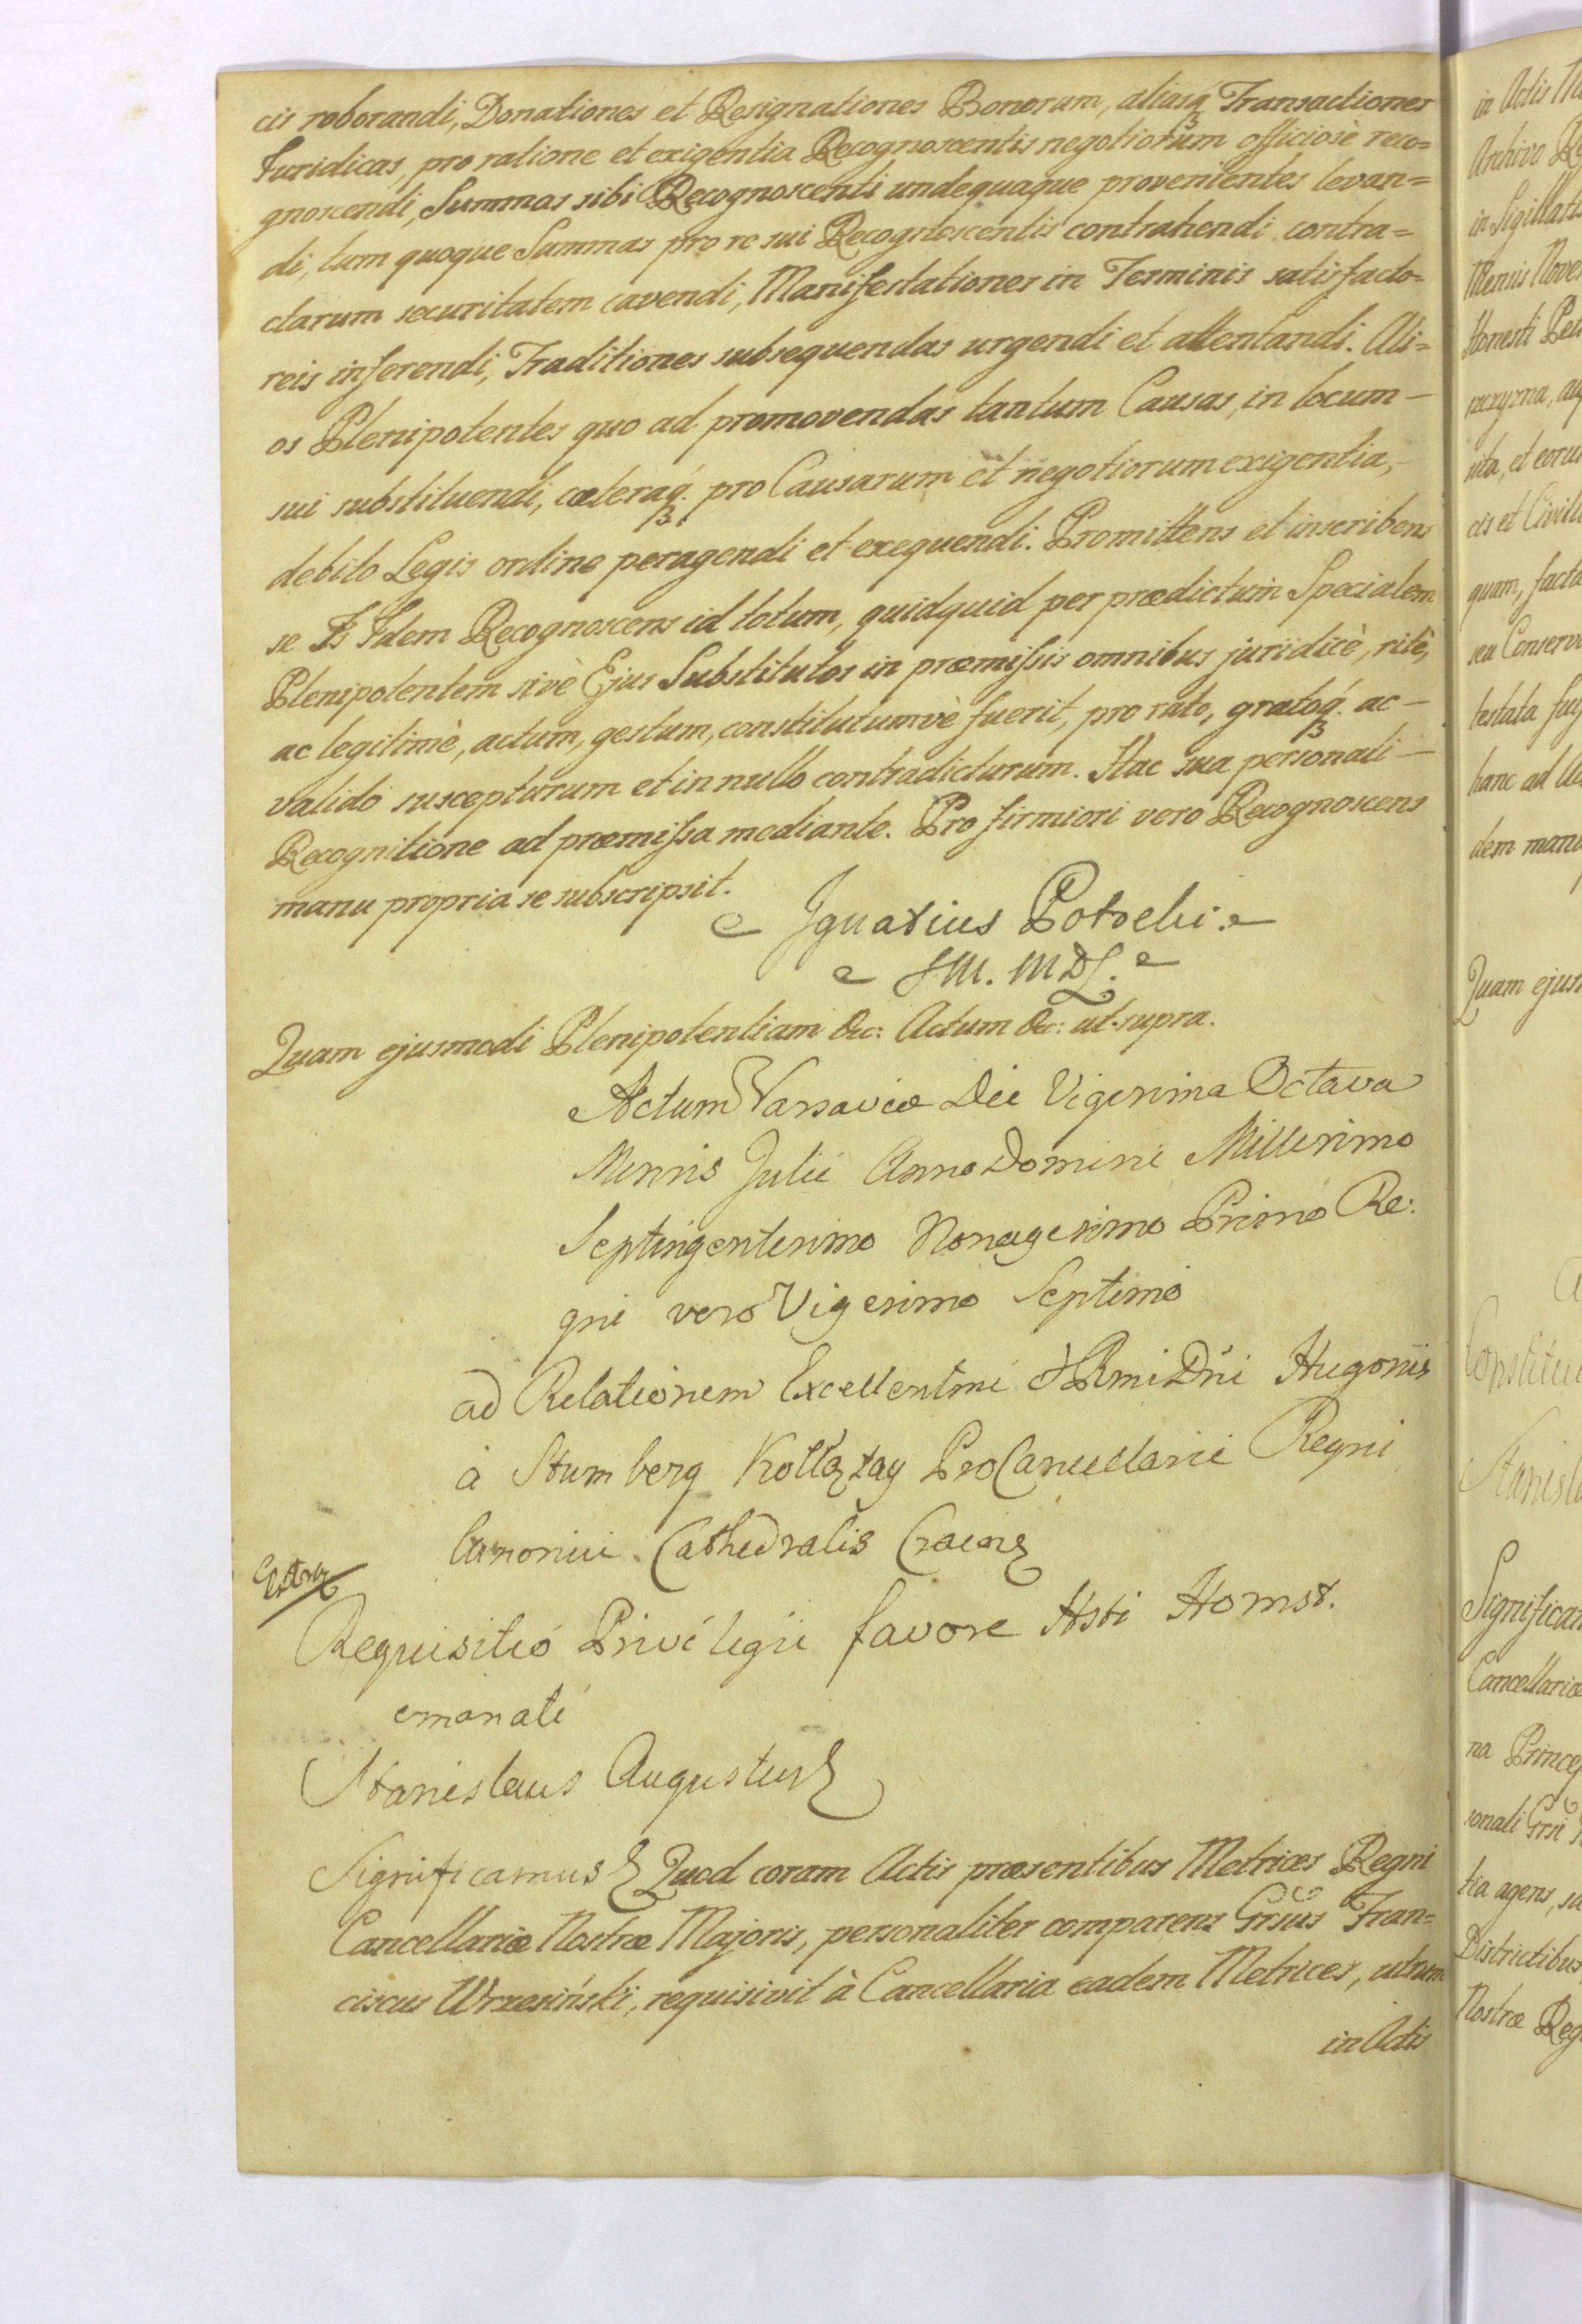 cis roborandi, Donationes et Resignationes Bonorum, aliasq́ꝫ Transactiones
Juridicas, pro ratione et exigentia Recognoscentis negotiorum officiosè reco=
gnoscendi, Summas sibi Recognoscenti undequaque provenientes levan=
di, tum quoque Summas pro re sui Recognoscentis contrahendi contra=
ctarum securitatem cavendi, Manifestationes in Terminis satisfacto=
reis inferendi, Traditiones subsequendas urgendi et attentandi. Ali=
os Plenipotentes quo ad promovendas tantum Causas, in locum —
sui substituendi, cæteraq́ꝫ pro Causarum et negotiorum exigentia, —
debito Legis ordine peragendi et exequendi. Promittens et inscribens
se Is Idem Recognoscens id totum, quidquid per prædictum Specialem
Plenipotentem sivè Ejus Substitutos in præmissis omnibus juridicè, ritè,
ac legitimè, actum, gestum, constitutumvè fuerit, pro rato, gratoq́ꝫ ac —
valido suscepturum et in nullo contradicturum. Hac sua personali —
Recognitione ad præmissa mediante. Pro firmiori vero Recognoscens
manu propria se subscripsit.
Ignatius Potocki.
M. M D L.
Quam ejusmodi Plenipotentiam &c: Actum &c: ut supra.
Actum Varsaviæ Die Vigesima Octava
Mensis Julii Anno Domini Millesimo
Septingentesimo Nonagesimo Primo Re:
gni vero Vigesimo Septimo
ad Relationem Excellentmi & Rmi Dñi Hugonis
à Stumberg Kołłątay ProCancellarii Regni
Canonici Cathedralis Cracov
Requisitió Privilegii favore Hsti Homst.
emanati
Stanislaus Augustus
Significamus Quod coram Actis præsentibus Metrices Regni
Cancellariæ Nostræ Majoris, personaliter comparens Grsus Fran=
ciscus Wrzesiński, requisivit à Cancellaria eadem Metrices, utrum
in Actis
in Actis
Archivo
in Sigillatis
Mensis
Honesti
et eorum
cis et
quam, facta
seu
testata
hanc ad
dem
Quam
Cancellariæ
na
sonali Grsi
tia agens,
Districtibus
Nostræ